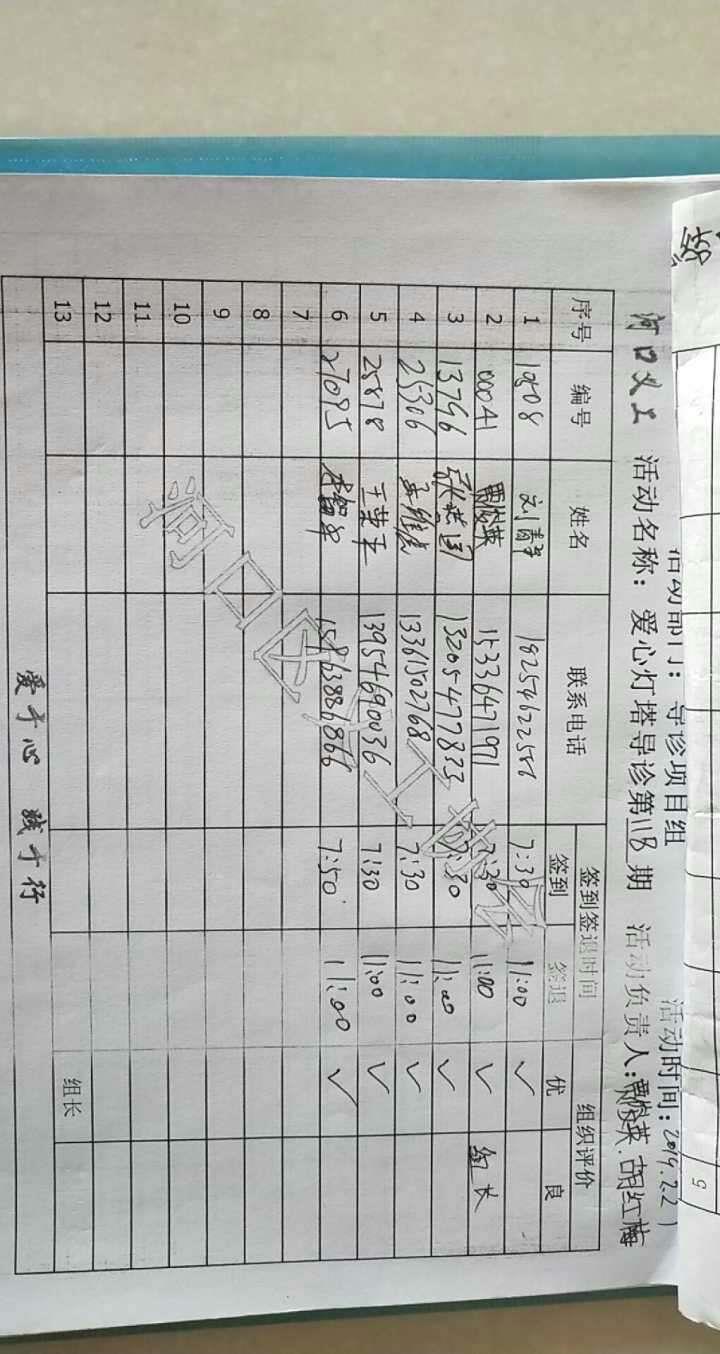 活动部门：导诊项目组 活动时间：2019.2.21
河口义工 活动名称：爱心灯塔导诊第118期 活动负责人：贾俊英.胡红梅
序号 编号 姓名 联系电话 签到签退时间 组织评价
签到 签退 优 良
1 刘 18254622586 7:30 11:00 ✓
2 00041 贾俊英 15336471971 7:30 11:00 ✓ 组长
3 13796 张洪国 13205477833 7:30 11:00 ✓
4 25306 13361502768 7:30 11:00 ✓
5 25878 王荣平 13954690036 7:30 11:00 ✓
6 27095 15863886866 7:50 11:00 ✓
7
8
9
10
11
12
13 组长
爱于心 践于行
河口区义工协会
5